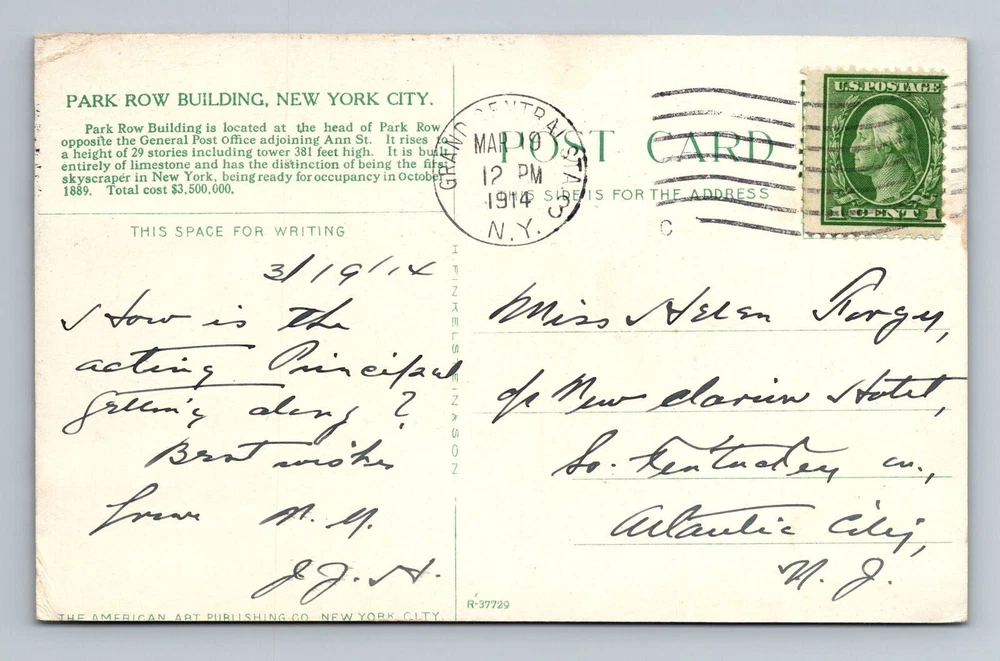 PARK ROW BUILDING, NEW YORK CITY.
Park Row Building is located at the head of Park Row
opposite the General Post Office adjoining Ann St. It rises
a height of 29 stories including tower 381 feet high. It is built
entirely of limestone and has the distinction of being the first
skyscraper in New York, being ready for occupancy in October
1889. Total cost $3,500,000.
THIS SPACE FOR WRITING
3/19/14
How is the
acting Principal
getting along?
Best wishes
from N.Y.
J.J.H.
THE AMERICAN ART PUBLISHING CO. NEW YORK CITY.
H. FINKELSTEIN & SON
GRAND CENTRAL STA.
MAR 19
12 PM
1914
N.Y.
POST CARD
THIS SIDE IS FOR THE ADDRESS
C
U.S. POSTAGE
1 CENT 1
Miss Helen
c/o New Clarion Hotel,
So. Kentucky av.,
Atlantic City,
N. J.
R-37729